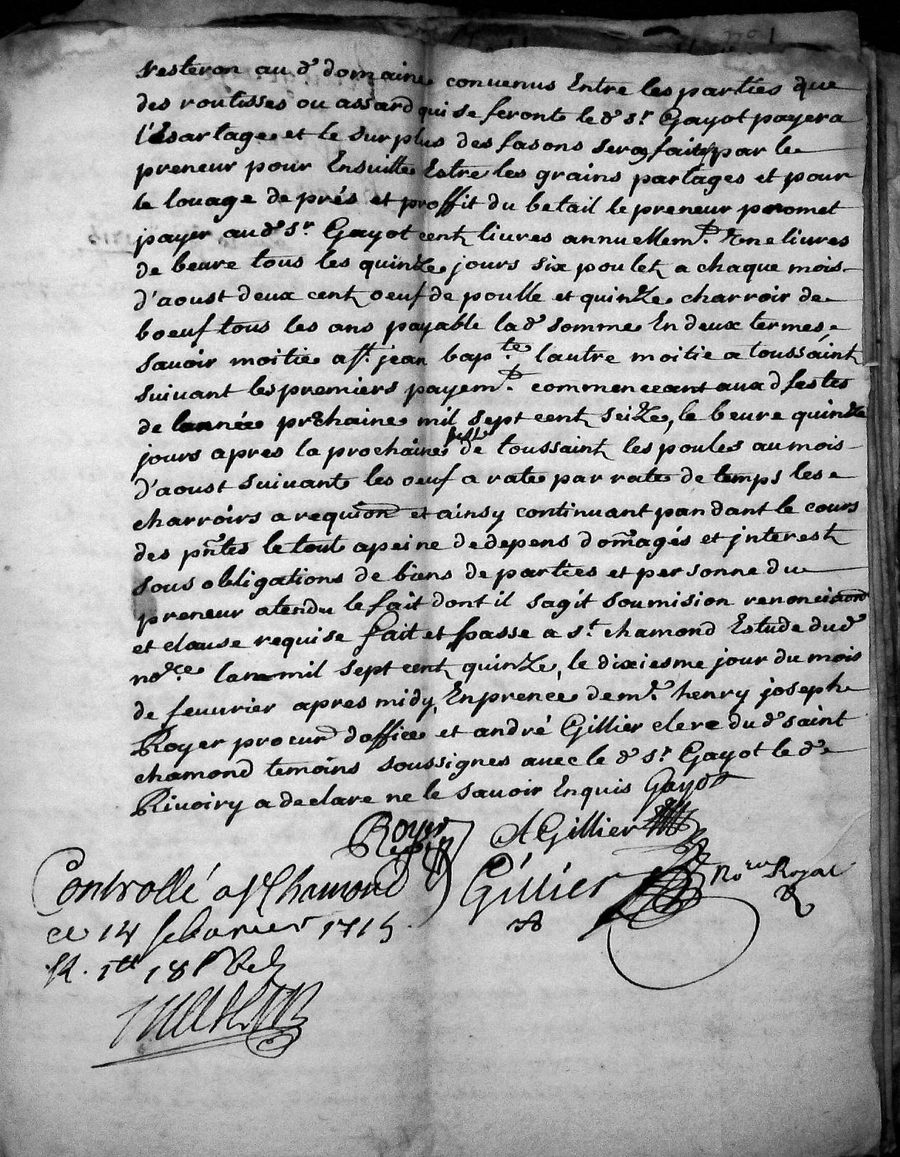 no 1
resteron au d. domaine convenus Entre les parties que
des routisses ou assard qui se feront le d. sr. Gayot payera
l'Esartage et le surplus des fasons sera fait par le
preneur pour Ensuitte Estre les grains partages et pour
le louage de prés et proffit du betail le preneur promet
payer au d. sr. Gayot cent livres annuellemt. une livres
de beure tous les quinze jours six poulet a chaque mois
d'aoust deux cent oeuf de poulle et quinze charroir de
boeuf tous les ans payable la d. somme En deux termes
savoir moitie a st. jean bapte. lautre moitie a toussaint
suivant les premiers payemt. commenceant aux d festes
de lannée prochaine mil sept cent seize, le beure quinze
jours apres la prochaine feste de toussaint les poules au mois
d'aoust suivant les oeuf a rate par rate de temps les
charroirs a requion et ainsy continuant pandant le cours
des pntes le tout a peine de depens domages et jnterest
sous obligations de biens de parties et personne du
preneur atendu le fait dont il sagit soumision renonciaon
et clause requise fait et passe a st. chamond Estude dud
nore. lan mil sept cent quinze, le dixiesme jour du mois
de feuvrier apres midy, En prence de mr. henry joseph
Royer procur d'office et andré Gillier clerc du d. saint
chamond temoins soussignes avec le d. sr. Gayot le d.
Rivoiry a declare ne le savoir Enquis Gayot
Royer AGillier
Gillier Nore Royal
Controllé a st Chamond
ce 14 febvrier 1715
R. 1tt 18s